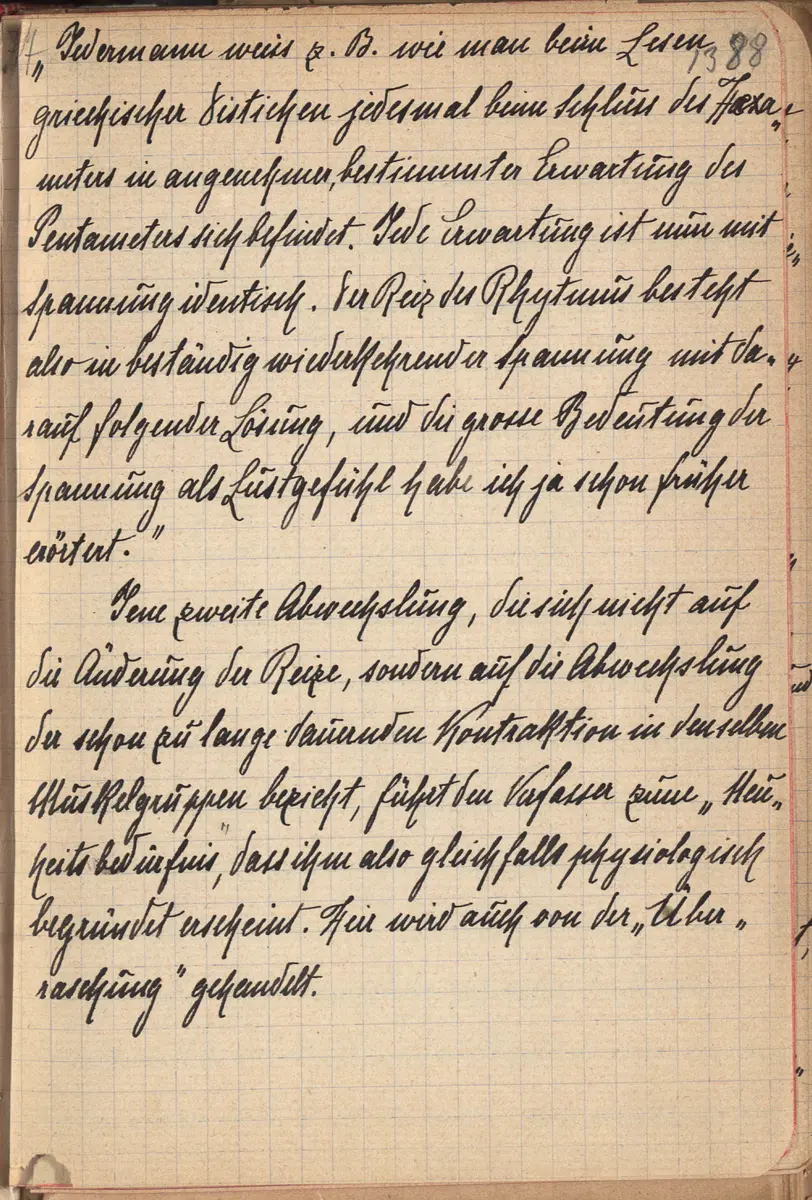 „Jedermann weiss z. B. wie man beim Lesen
1388
griechischer Distichen jedesmal beim Schluss des Hexa„
meters in angenehmer, bestimmter Erwartung des
Pentameters sich befindet. Jede Erwartung ist nun mit
Spannung identisch. Der Reiz des Rhytmus besteht
also in beständig wiederkehrender Spannung mit da„
rauf folgender Lösung, und die grosse Bedeutung der
Spannung als Lustgefühl habe ich ja schon früher
erörtert."
Jene zweite Abwechslung, die sich nicht auf
die Änderung der Reize, sondern auf die Abwechslung
der schon zu lange dauernden Kontraktion in denselben
Muskelgruppen bezieht, führt den Verfasser zum „Neu„
heitsbedürfnis", dass ihm also gleichfalls physiologisch
begründet erscheint. Heir wird auch von der „Über„
raschung" gehandelt.